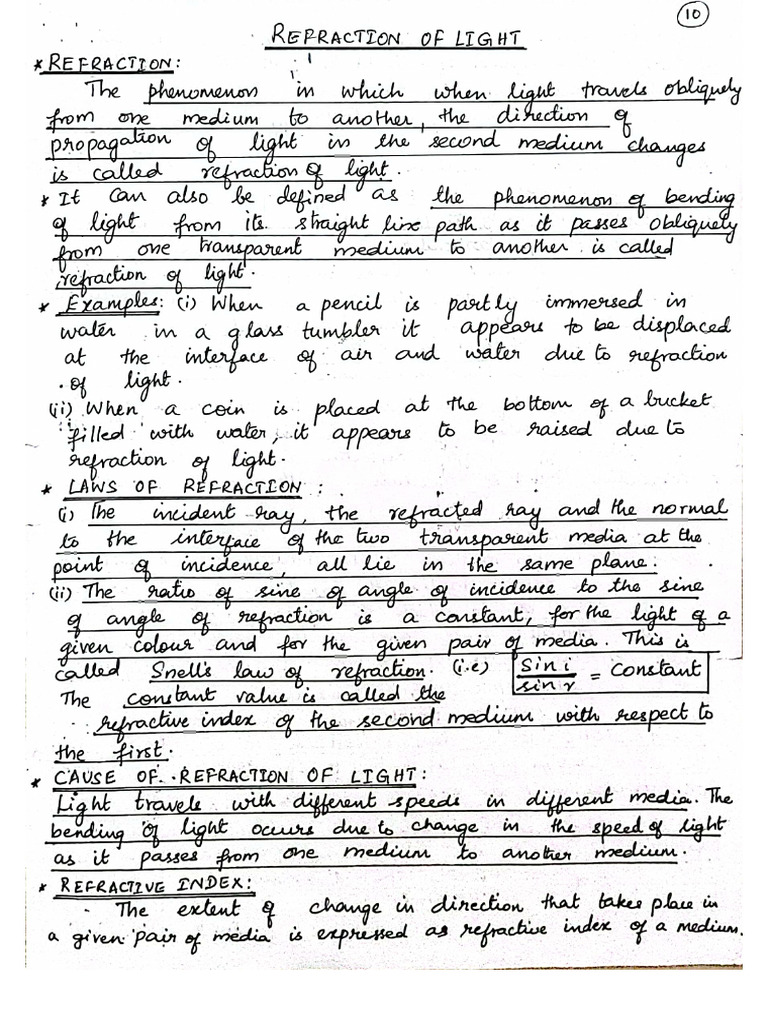 10
REFRACTION OF LIGHT
* REFRACTION:
The phenomenon in which when light travels obliquely
from one medium to another, the direction of
propagation of light in the second medium changes
is called refraction of light.
* It can also be defined as the phenomenon of bending
of light from its straight line path as it passes obliquely
from one transparent medium to another is called
refraction of light.
* Examples: (i) When a pencil is partly immersed in
water in a glass tumbler it appears to be displaced
at the interface of air and water due to refraction
of light.
(ii) When a coin is placed at the bottom of a bucket
filled with water, it appears to be raised due to
refraction of light.
* LAWS OF REFRACTION :
(i) The incident ray, the refracted ray and the normal
to the interface of the two transparent media at the
point of incidence, all lie in the same plane.
(ii) The ratio of sine of angle of incidence to the sine
of angle of refraction is a constant, for the light of a
given colour and for the given pair of media. This is
called Snell's law of refraction. (i.e) Sin i / sin r = Constant
The constant value is called the
refractive index of the second medium with respect to
the first.
* CAUSE OF REFRACTION OF LIGHT:
Light travels with different speeds in different media. The
bending of light occurs due to change in the speed of light
as it passes from one medium to another medium.
* REFRACTIVE INDEX:
The extent of change in direction that takes place in
a given pair of media is expressed as refractive index of a medium.